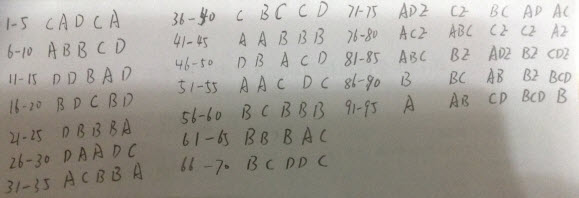 1-5 C A D C A
6-10 A B B C D
11-15 D D B A D
16-20 B D C B D
21-25 D B B B A
26-30 D A A D C
31-35 A C B B A
36-40 C B C C D
41-45 A A B B B
46-50 D B A C D
51-55 A A C D C
56-60 B C B B B
61-65 B B B A C
66-70 B C D D C
71-75 ADZ CZ BC AD AC
76-80 ACZ ABC CZ CZ AZ
81-85 ABC BZ ADZ BZ CDZ
86-90 B BC AB BZ BCD
91-95 A AB CD BCD B